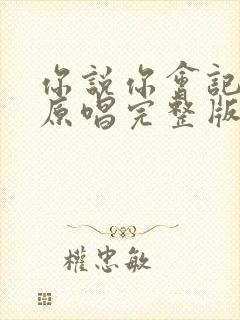 你說你會記
原唱完整版
權忠敏